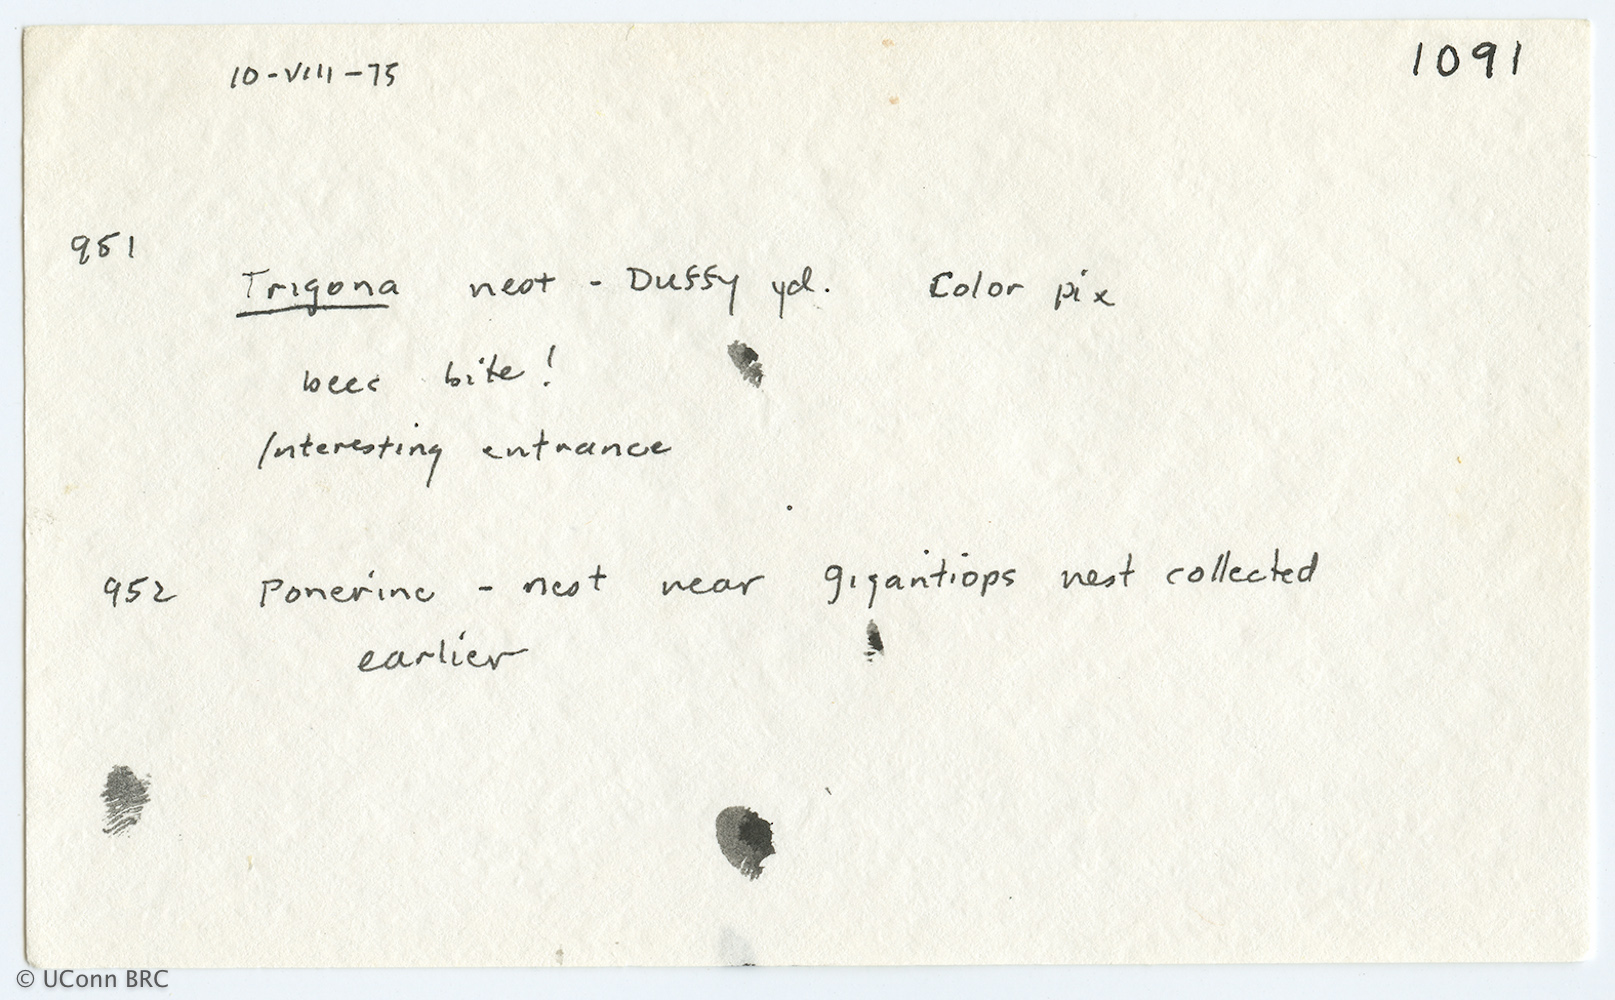 10-VIII-75
1091
951
Trigona nest - Duffy yd. Color pix
bees bite!
Interesting entrance
952 Ponerine - nest near gigantiops nest collected
earlier
© UConn BRC